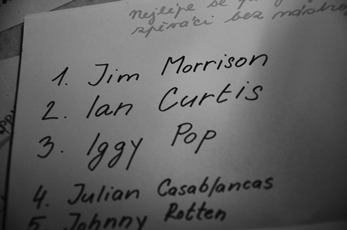 Nejlépe se
zpěváci bez
1. Jim Morrison
2. Ian Curtis
3. Iggy Pop
4. Julian Casablancas
5. Johnny Rotten